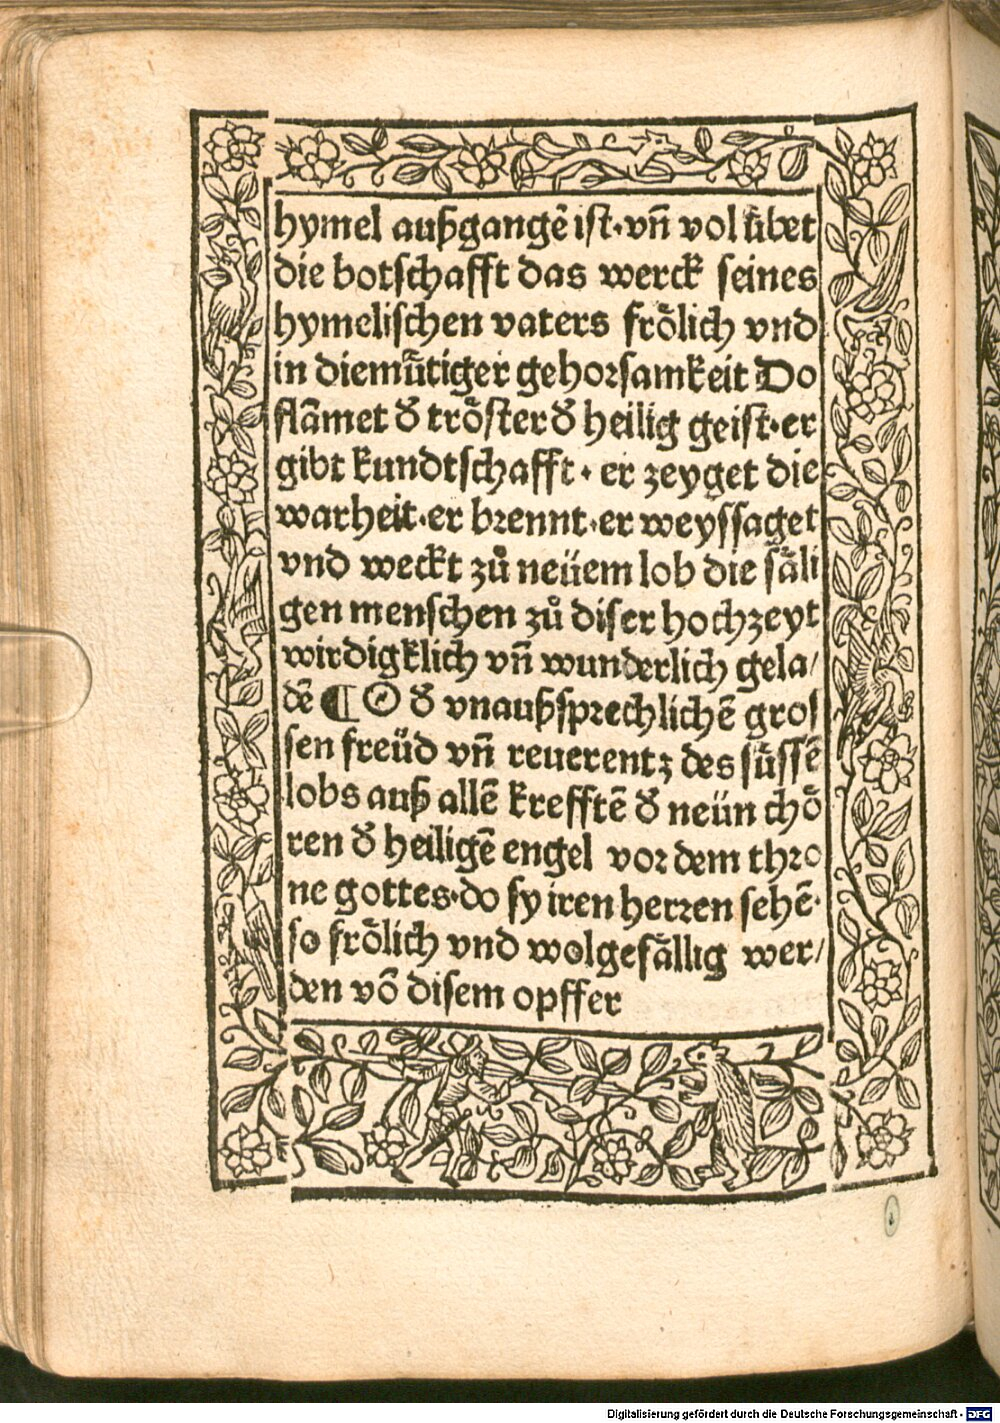 hymel außgangē ist·vn̄ vol ůbet
die botschafft das werck seines
hymelischen vaters froͤlich vnd
in diemuͤtiger gehorsamkeit Do
flāmet d̓ troͤster d̓ heilig geist·er
gibt kundtschafft·er zeyget die
warheit·er brennt·er weyssaget
vnd weckt zů neüem lob die saͤli
gen menschen zů diser hochzeyt
wirdigklich vn̄ wunderlich gela/
dē ¶ O d̓ vnaußsprechlichē gros
sen freüd vn̄ reuerentz des suͤssē
lobs auß allē krefftē d̓ neün choͤ
ren d̓ heiligē engel vor dem thro
ne gottes·do sy iren herren sehē·
so froͤlich vnd wolgefaͤllig wer/
den vō disem opffer
Digitalisierung gefördert durch die Deutsche Forschungsgemeinschaft - DFG